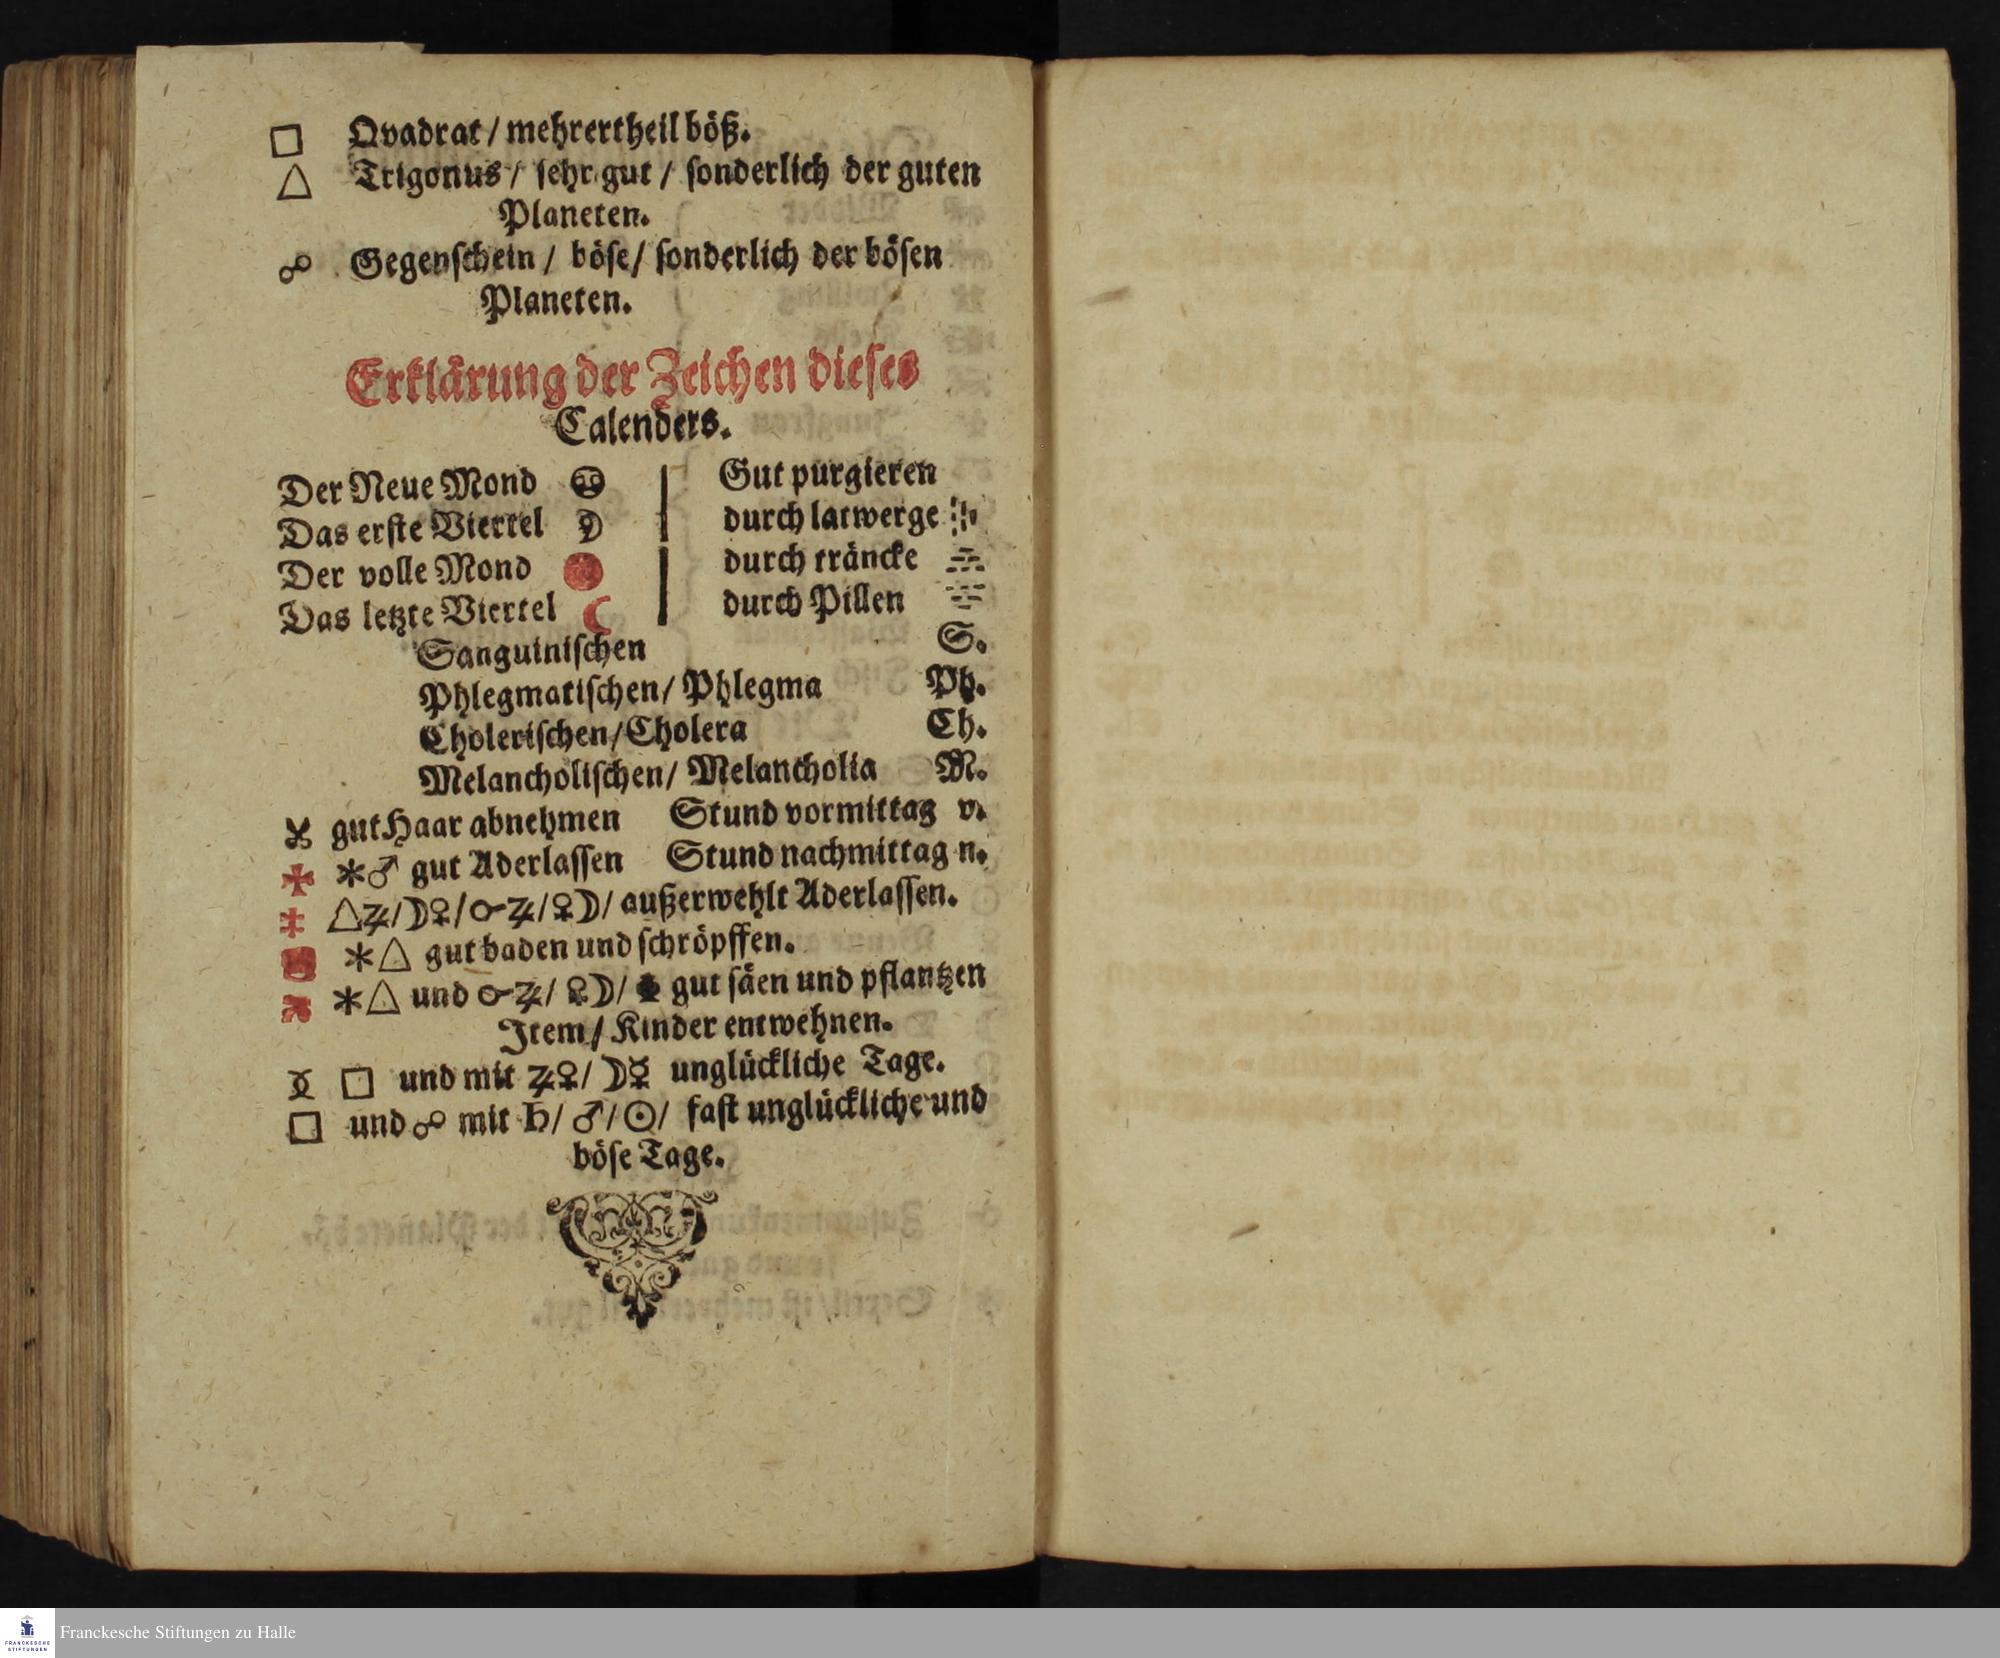 □ Qvadrat / mehrertheil böß.
△ Trigonus / sehr gut / sonderlich der guten
Planeten.
☍ Gegenschein / böse / sonderlich der bösen
Planeten.
Erklärung der Zeichen dieses
Calenders.
Der Neue Mond 🌚
Das erste Viertel ☽
Der volle Mond
Das letzte Viertel ☾
Gut purgieren
durch latwerge
durch träncke
durch Pillen
Sanguinischen S.
Phlegmatischen / Phlegma Ph.
Cholerischen / Cholera Ch.
Melancholischen / Melancholia M.
gut Haar abnehmen Stund vormittag v.
✠ ⚹ ♂ gut Aderlassen Stund nachmittag n.
‡ △ ♃ / ☽ ♀ / ☌ ♃ / ♀ ☽ / außerwehlt Aderlassen.
⚹ △ gut baden und schröpffen.
⚹ △ und ☌ ♃ / ♀ ☽ / gut säen und pflantzen
Item / Kinder entwehnen.
□ und mit ♃ ♀ / ☽ ☿ unglückliche Tage.
□ und ☍ mit ♄ / ♂ / ☉ / fast unglückliche und
böse Tage.
FRANCKESCHE
STIFTUNGEN
Franckesche Stiftungen zu Halle